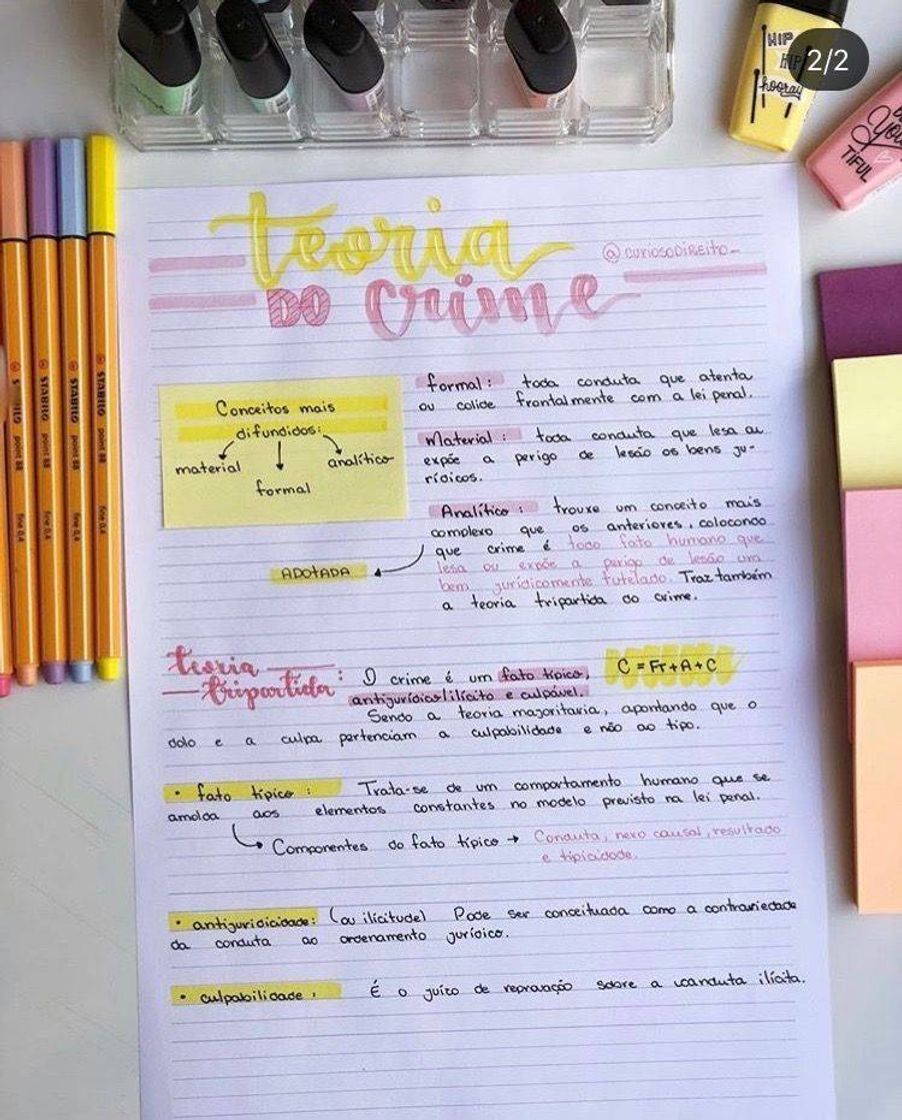 HIP
HIP
hooray
2/2
You
TIFUL
teoria
@curiosoDiREito_
DO crime
STABILO point 88 fine 0,4
STABILO point 88 fine 0,4
STABILO point 88 fine 0,4
STABILO point 88 fine 0,4
Conceitos mais
difundidos:
material
analítico
formal
formal: toda conduta que atenta
ou colide frontalmente com a lei penal.
Material: toda conduta que lesa ou
expõe a perigo de lesão os bens ju-
rídicos.
Analítico: trouxe um conceito mais
complexo que os anteriores, colocando
que crime é todo fato humano que
lesa ou expõe a perigo de lesão um
bem jurídicamente tutelado. Traz também
a teoria tripartida do crime.
ADOTADA
teoria
tripartida:
O crime é um fato típico,
C = FT + A + C
antijurídico/ilícito e culpável.
Sendo a teoria majoritaria, apontando que o
dolo e a culpa pertenciam a culpabilidade e não ao tipo.
• fato típico: Trata-se de um comportamento humano que se
amolda aos elementos constantes no modelo previsto na lei penal.
Componentes do fato típico → Conduta, nexo causal, resultado
e tipicidade.
• antijuridicidade: (ou ilicitude) Pode ser conceituada como a contrariedade
da conduta ao ordenamento jurídico.
• culpabilidade: É o juízo de reprovação sobre a conduta ilícita.